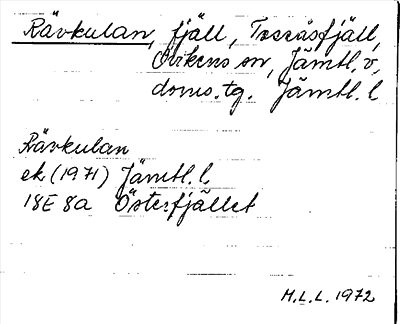 Rävkulan, fjäll, Tossåsfjäll,
Ovikens sn, Jämtl. v.
doms.tg. Jämtl. l.
Rävkulan
ek (1971) Jämtl. l.
18E 8a Österfjället
M.L.L. 1972